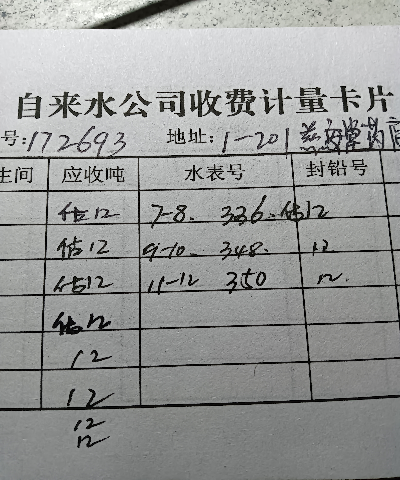 自来水公司收费计量卡片
号:172693 地址:1-201 慈安堂药店
生间 应收吨 水表号 封铅号
估12 7-8. 336. 估12
估12 9-10. 348. 12
估12 11-12 350 12.
估12
12
12
12
12